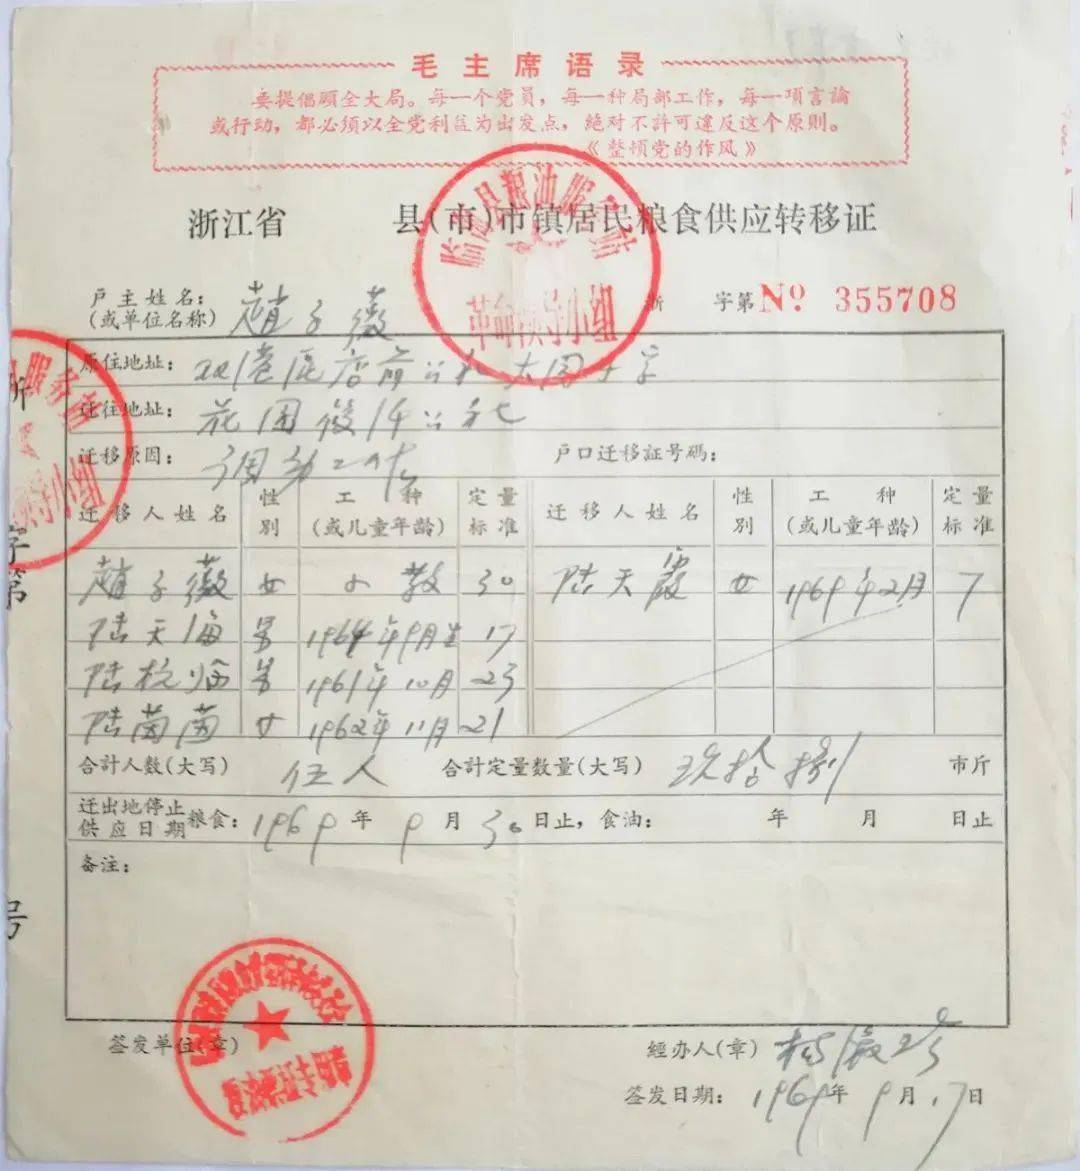 毛主席语录
要提倡顾全大局。每一个党员，每一种局部工作，每一項言論
或行动，都必须以全党利益为出发点，绝对不許可違反这个原则。
《整頓党的作风》
浙江省 县(市)市镇居民粮食供应转移证
临海县粮油服务站
革命领导小组
户主姓名：
(或单位名称) 趙子薇
浙 字第 № 355708
原住地址： 店前公社
迁往地址： 花园 公社
迁移原因： 调动工作 户口迁移証号碼：
迁移人姓名 性别 工种(或儿童年龄) 定量标准 迁移人姓名 性别 工种(或儿童年龄) 定量标准
趙子薇 女 小教 30 陆天霞 女 1969年2月 7
陆天海 男 1964年9月生 17
陆杭临 男 1961年10月 23
陆茵茵 女 1962年11月 21
合計人数(大写) 伍人 合計定量数量(大写) 玖拾捌 市斤
迁出地停止供应日期 粮食：1969年9月30日止，食油： 年 月 日止
备注：
签发单位(章) 經办人(章) 杨
签发日期： 1969年9月17日
服务站
领导小组
字第
号